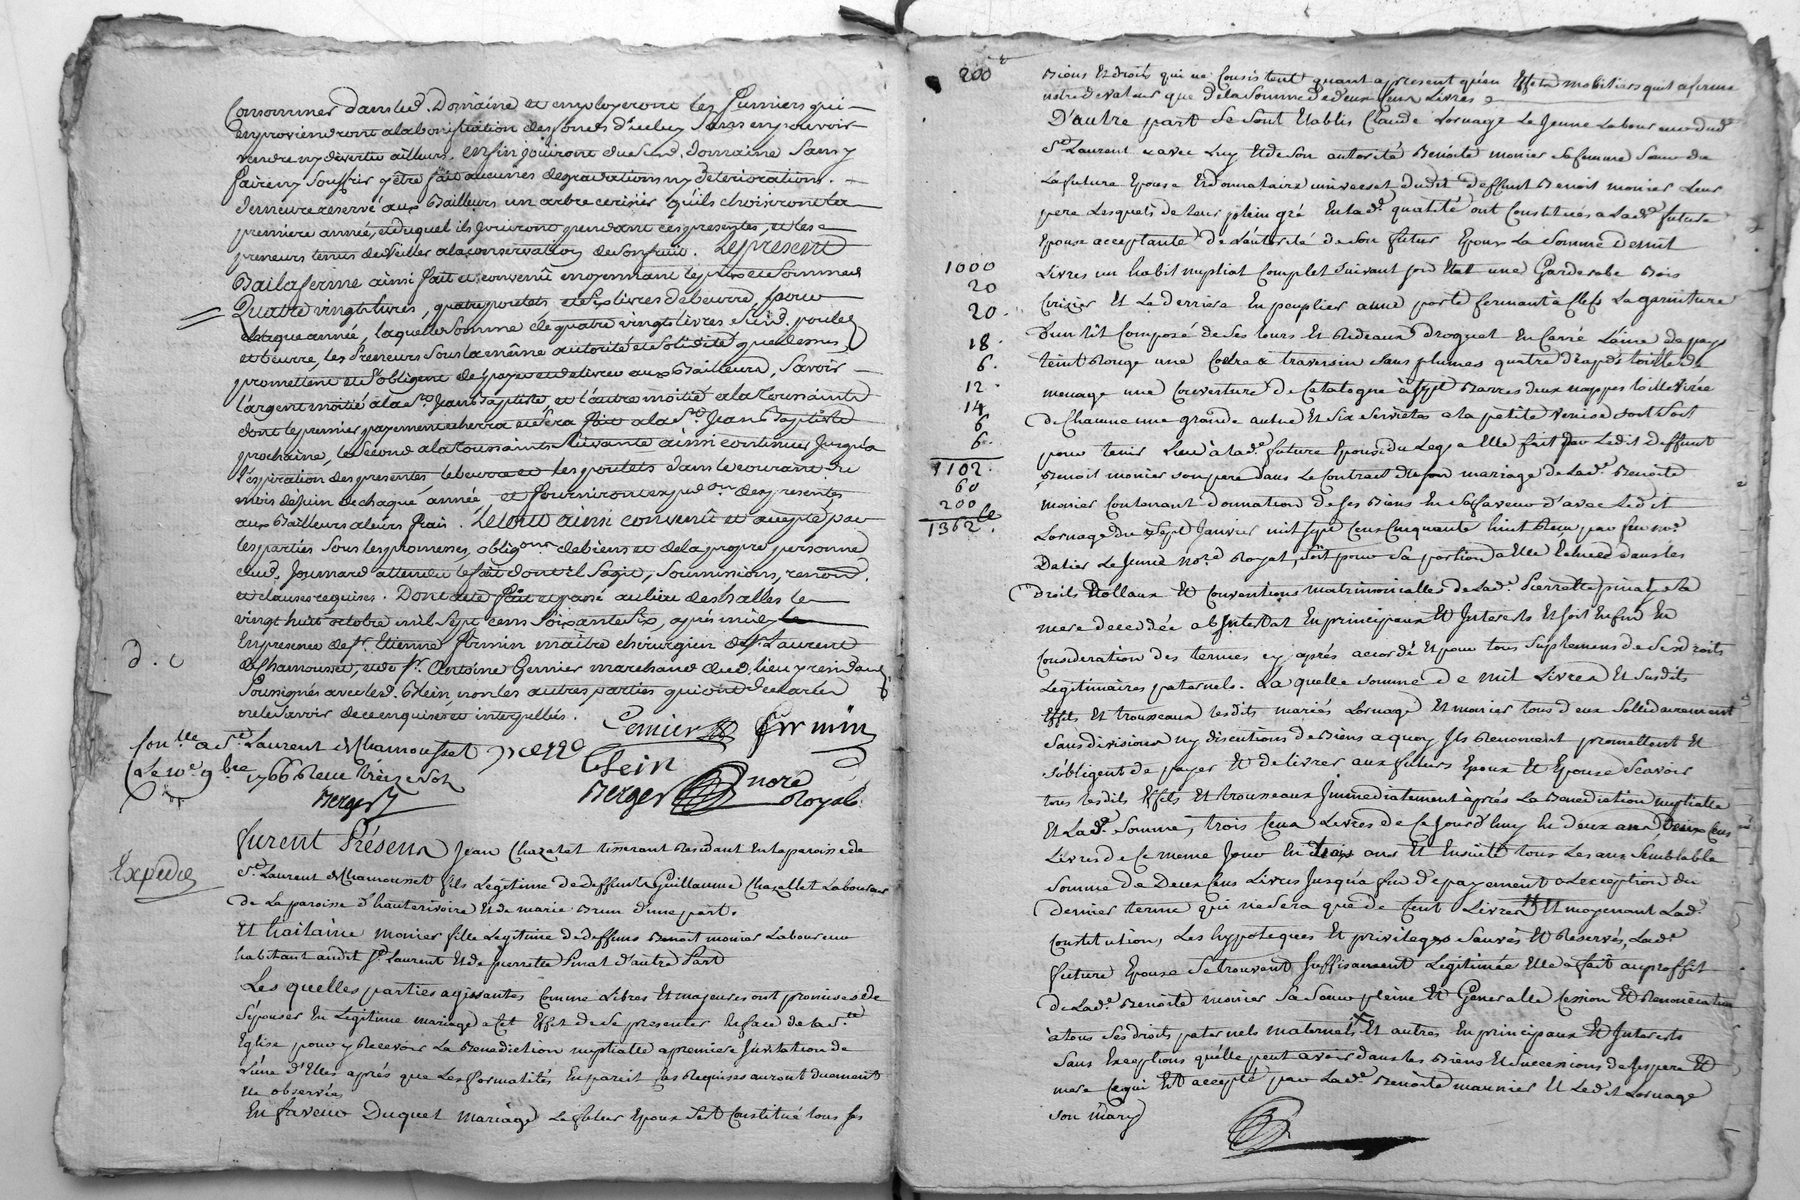 Consommer dans led. Domaine et employeront les fumiers qui
en proviendront a la bonification des fonds d'iceluy sans en pouvoir
vendre ny divertir ailleurs. enfin jouiront dud. domaine sans y
faire ny souffrir y être fait aucunes degradations ny deteriorations.
demeure reservé aux Bailleurs un arbre cerisier qu'ils choisiront la
premiere année, et duquel ils jouiront pendant ces presentes, et les
preneurs tenus de veiller a la conservation de son fruit. Le present
Bail a ferme ainsi fait et convenû moyennant le prix et somme de
Quatre vingt livres, quatre poulets et six livres de beurre, pour
chaque année, laquelle somme de quatre vingt livres susd. poulets
et beurre, les Preneurs sous la même autorité et solidité que dessus
promettent et s'obligent de payer et delivrer aux Bailleurs, Savoir
l'argent moitié a la St. Jean Baptiste et l'autre moitié a la Toussaints
dont le premier payement
prochaine, le second a la toussaints suivante ainsi continuer jusqu'a
l'expiration des presentes, le beurre et les poulets dans le courant du
mois de juin de chaque année et fourniront expedon. des presentes
aux Bailleurs a leurs frais. Le tout ainsi convenû et accepté par
les parties sous les promesses, obligons. de biens et de la propre personne
dud. Joumard attendu le fait dont il s'agit, soumissions, renon.
et clauses requises. Dont acte fait et passé au lieu des halles le
vingt huit octobre mil sept cens soixante six, après midy
En presence de sr. Etienne Firmin maitre chirurgien de St. Laurent
de Chamousset, et de sr. Antoine Gernier marchand dud. lieu y residants
Soussignés avec led. Blein, non les autres parties qui ont declaré
ne le savoir de ce enquises et interpellés.
d. c
Gernier firmin
Blein
Berger nore Royal
Conlle a St. Laurent de Chamousset
Le 10e 9bre 1766 Reçu treize sols
Berger
Expedié
furent Présens Jean Chazalet tisserant Residant en la paroisse de
St. Laurent de Chamousset fils Légitime de deffunt Guillaume Chazallet Laboureur
de La paroisse d'hauterivoire Et de marie Brun d'une part.
Et monier fille Legitime de deffunt Benoit monier Laboureur
habitant audit St. Laurent Et de pierrette Pinat d'autre Part
Les quelles parties agissantes Comme Libres Et majeures ont promis de
S'épouser En Legitime mariage a Cet Effet de se presenter En face de la Ste.
Eglise pour y Recevoir La Benediction nuptialle a premiere Invitation de
l'une d'Elles aprés que Les formalités En pareil Cas Requises auront duement
Eté observés
En faveur Duquel mariage Le futur Epoux s'est Constitué tous ses
200
Biens Et droits qui ne Consistent quant apresent qu'en Effets mobiliers qu'il a firme
n'etre de valeur que de la Somme de deux Cens Livres
D'autre part Se Sont Etablis Claude Lornage Le Jeune Laboureur dud.
St. Laurent Et avec Luy Et de Son autorité Benoite monier Sa femme Soeur de
La future Epouse Et donnataire universel dudit deffunt Benoit monier Leur
pere Lesquels de Leur plein gré En lad. qualité ont Constitués a Lade. future
Epouse acceptante de l'autorité de Son futur Epoux La Somme de mil
1000 Livres un habit nuptial Complet Suivant son Etat une Garderobe Bois
20 Cerisier Et Le derriere En peuplier a une porte fermant à Clefs La garniture
20. D'un Lit Composé de Ses tours Et Rideaux droguet En Carré Laine de pays
18. teint Rouge une Coetre à traversin Sans plumes quatre draps toille de
6. menage une Couverture de Catalogne à Sept Barres deux nappes toille
12. de Chanvre une grande autre Et Six Serviettes a la petite venise Soit
14 pour tenir Lieu à lade. future Epouse du Legs a Elle fait par Ledit deffunt
6
6.
1102.
60
200
1362.
Benoit monier son pere dans Le Contrat de mariage de Lade. Benoite
monier Contenant donnation de Ses Biens En Sa faveur d'avec Ledit
Lornage du Sept Janvier mil Sept Cens Cinquante huit Reçu par feu me.
Dalier Le Jeune nore. Royal, Soit pour Sa portion a Elle Echuee dans les
Droits Dottaux Et Conventions matrimonialles de Lade. Pierrette pinat Sa
mere decedée ab Intestat En principaux Et Interets Et Soit Enfin En
Consideration des termes cy aprés accordé Et pour tous Suplemens de Ses droits
Legitimaires paternels. La quelle Somme de mil Livres Et Susdits
Effets Et trousseaux Lesdits mariés Lornage Et monier tous deux Sollidairement
Sans division ny discution de Biens a quoy Ils Renoncent promettent Et
s'obligent de payer Et delivrer aux futurs Epoux Et Epouse Scavoir
tous lesdits Effets Et trousseaux Immediatement après La Benediction nuptialle
Et Lade. Somme, trois Cens Livres de Ce Jourd'huy En deux ans deux Cens
Livres de Ce meme Jour En trois ans Et Ensuite tous Les ans Semblable
Somme de Deux Cens Livres Jusqu'a fin d'payement a L'exception du
dernier terme qui ne Sera que de Cent Livres Et moyenant Lade.
Constitution, Les hypoteques Et privileges Sauvés Et Reservés, Lade.
future Epouse Se trouvant Suffisament Legitimée Elle a fait au proffit
de Lade. Benoite monier Sa Soeur pleine Et Generalle Cession Et Renonciation
à tous Ses droits paternels maternels Et autres En principaux Et Interets
Sans Exceptions qu'elle peut avoir dans les Biens Et Successions de Ses pere Et
mere Ce qui Est accepté par Lade. Benoite mounier Et Ledit Lornage
son mary